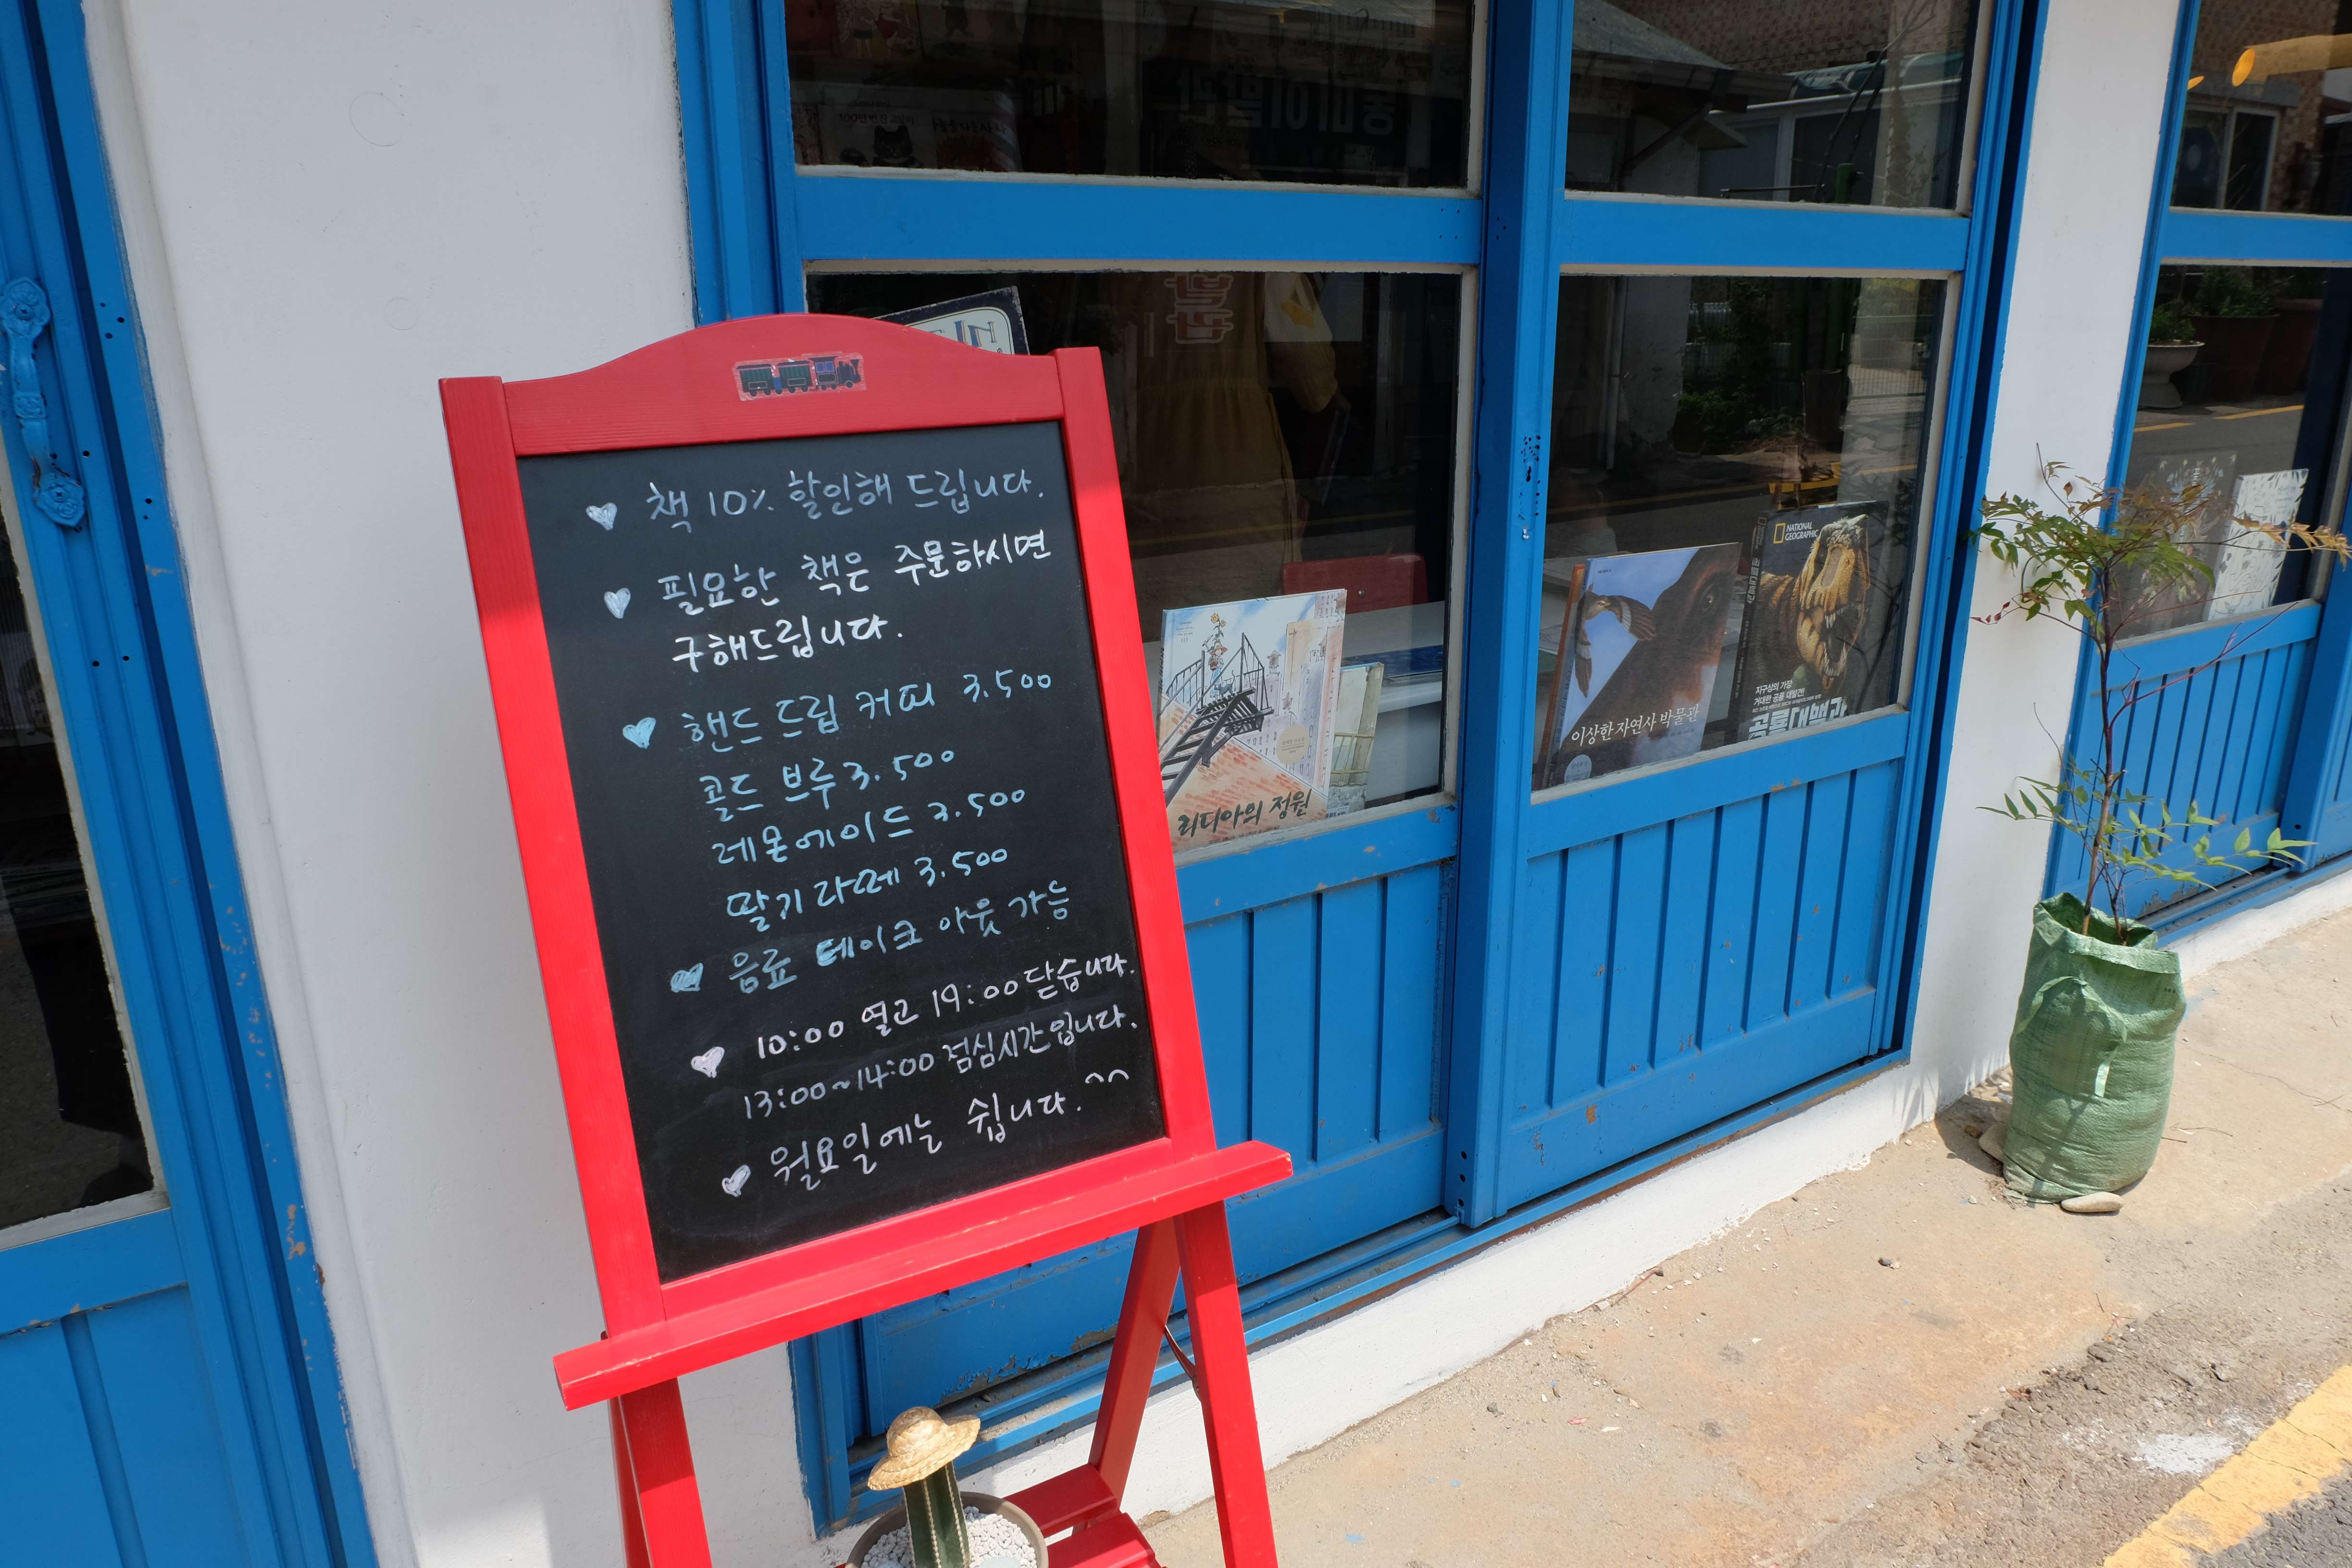 책 10% 할인해 드립니다.
필요한 책은 주문하시면
구해드립니다.
핸드 드립 커피 3.500
콜드 브루 3.500
레몬에이드 3.500
딸기라떼 3.500
음료 테이크 아웃 가능
10:00 열고 19:00 닫습니다.
13:00~14:00 점심시간입니다.
월요일에는 쉽니다. ^^
리디아의 정원
이상한 자연사 박물관
NATIONAL
GEOGRAPHIC
지구상의 가장
거대한 공룡 대발견!
공룡대백과